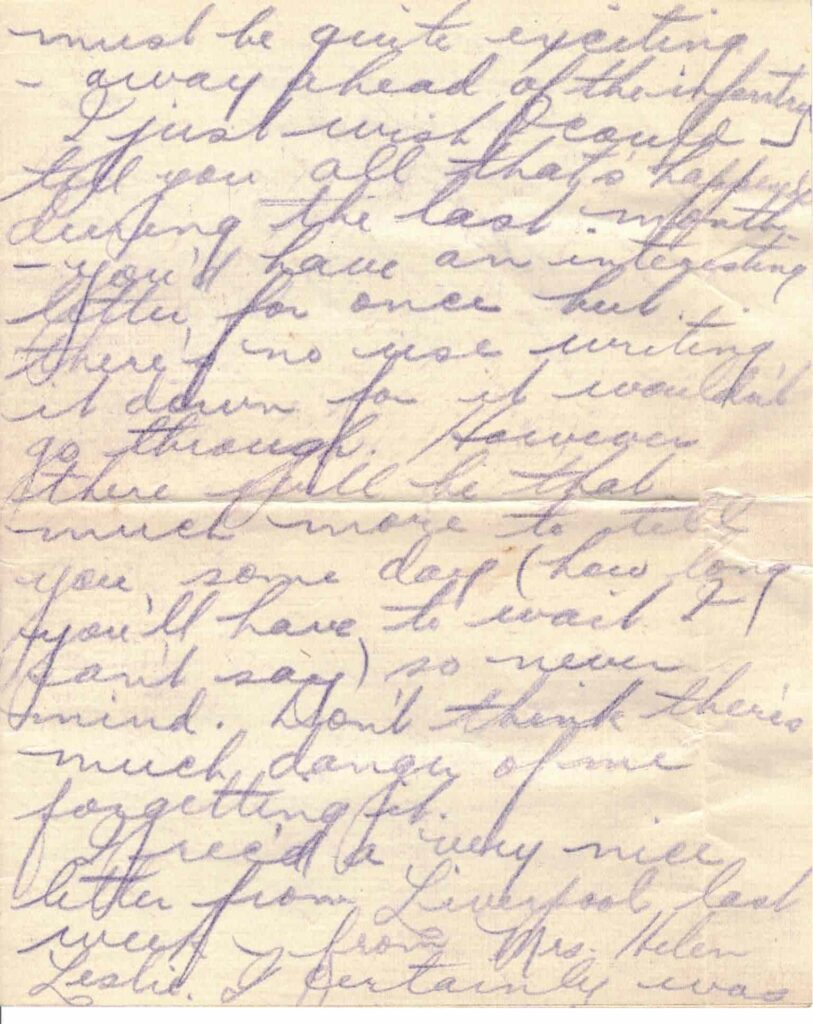 must be quite exciting
- away ahead of the infantry
I just wish I could
tell you all that's happened
during the last month.
- you'll have an interesting
letter for once but
there's no use writing
it down for it wouldn't
go through. However
there will be that
much more to tell
you some day (how long
you'll have to wait I
can't say) so never
mind. Don't think there's
much danger of me
forgetting it.
I rec'd a very nice
letter from Liverpool last
week from Mrs. Helen
Leslie. I certainly was